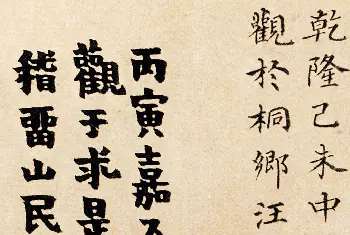 乾隆己未中
觀於桐鄉汪
丙寅嘉
觀于求是
稽留山民